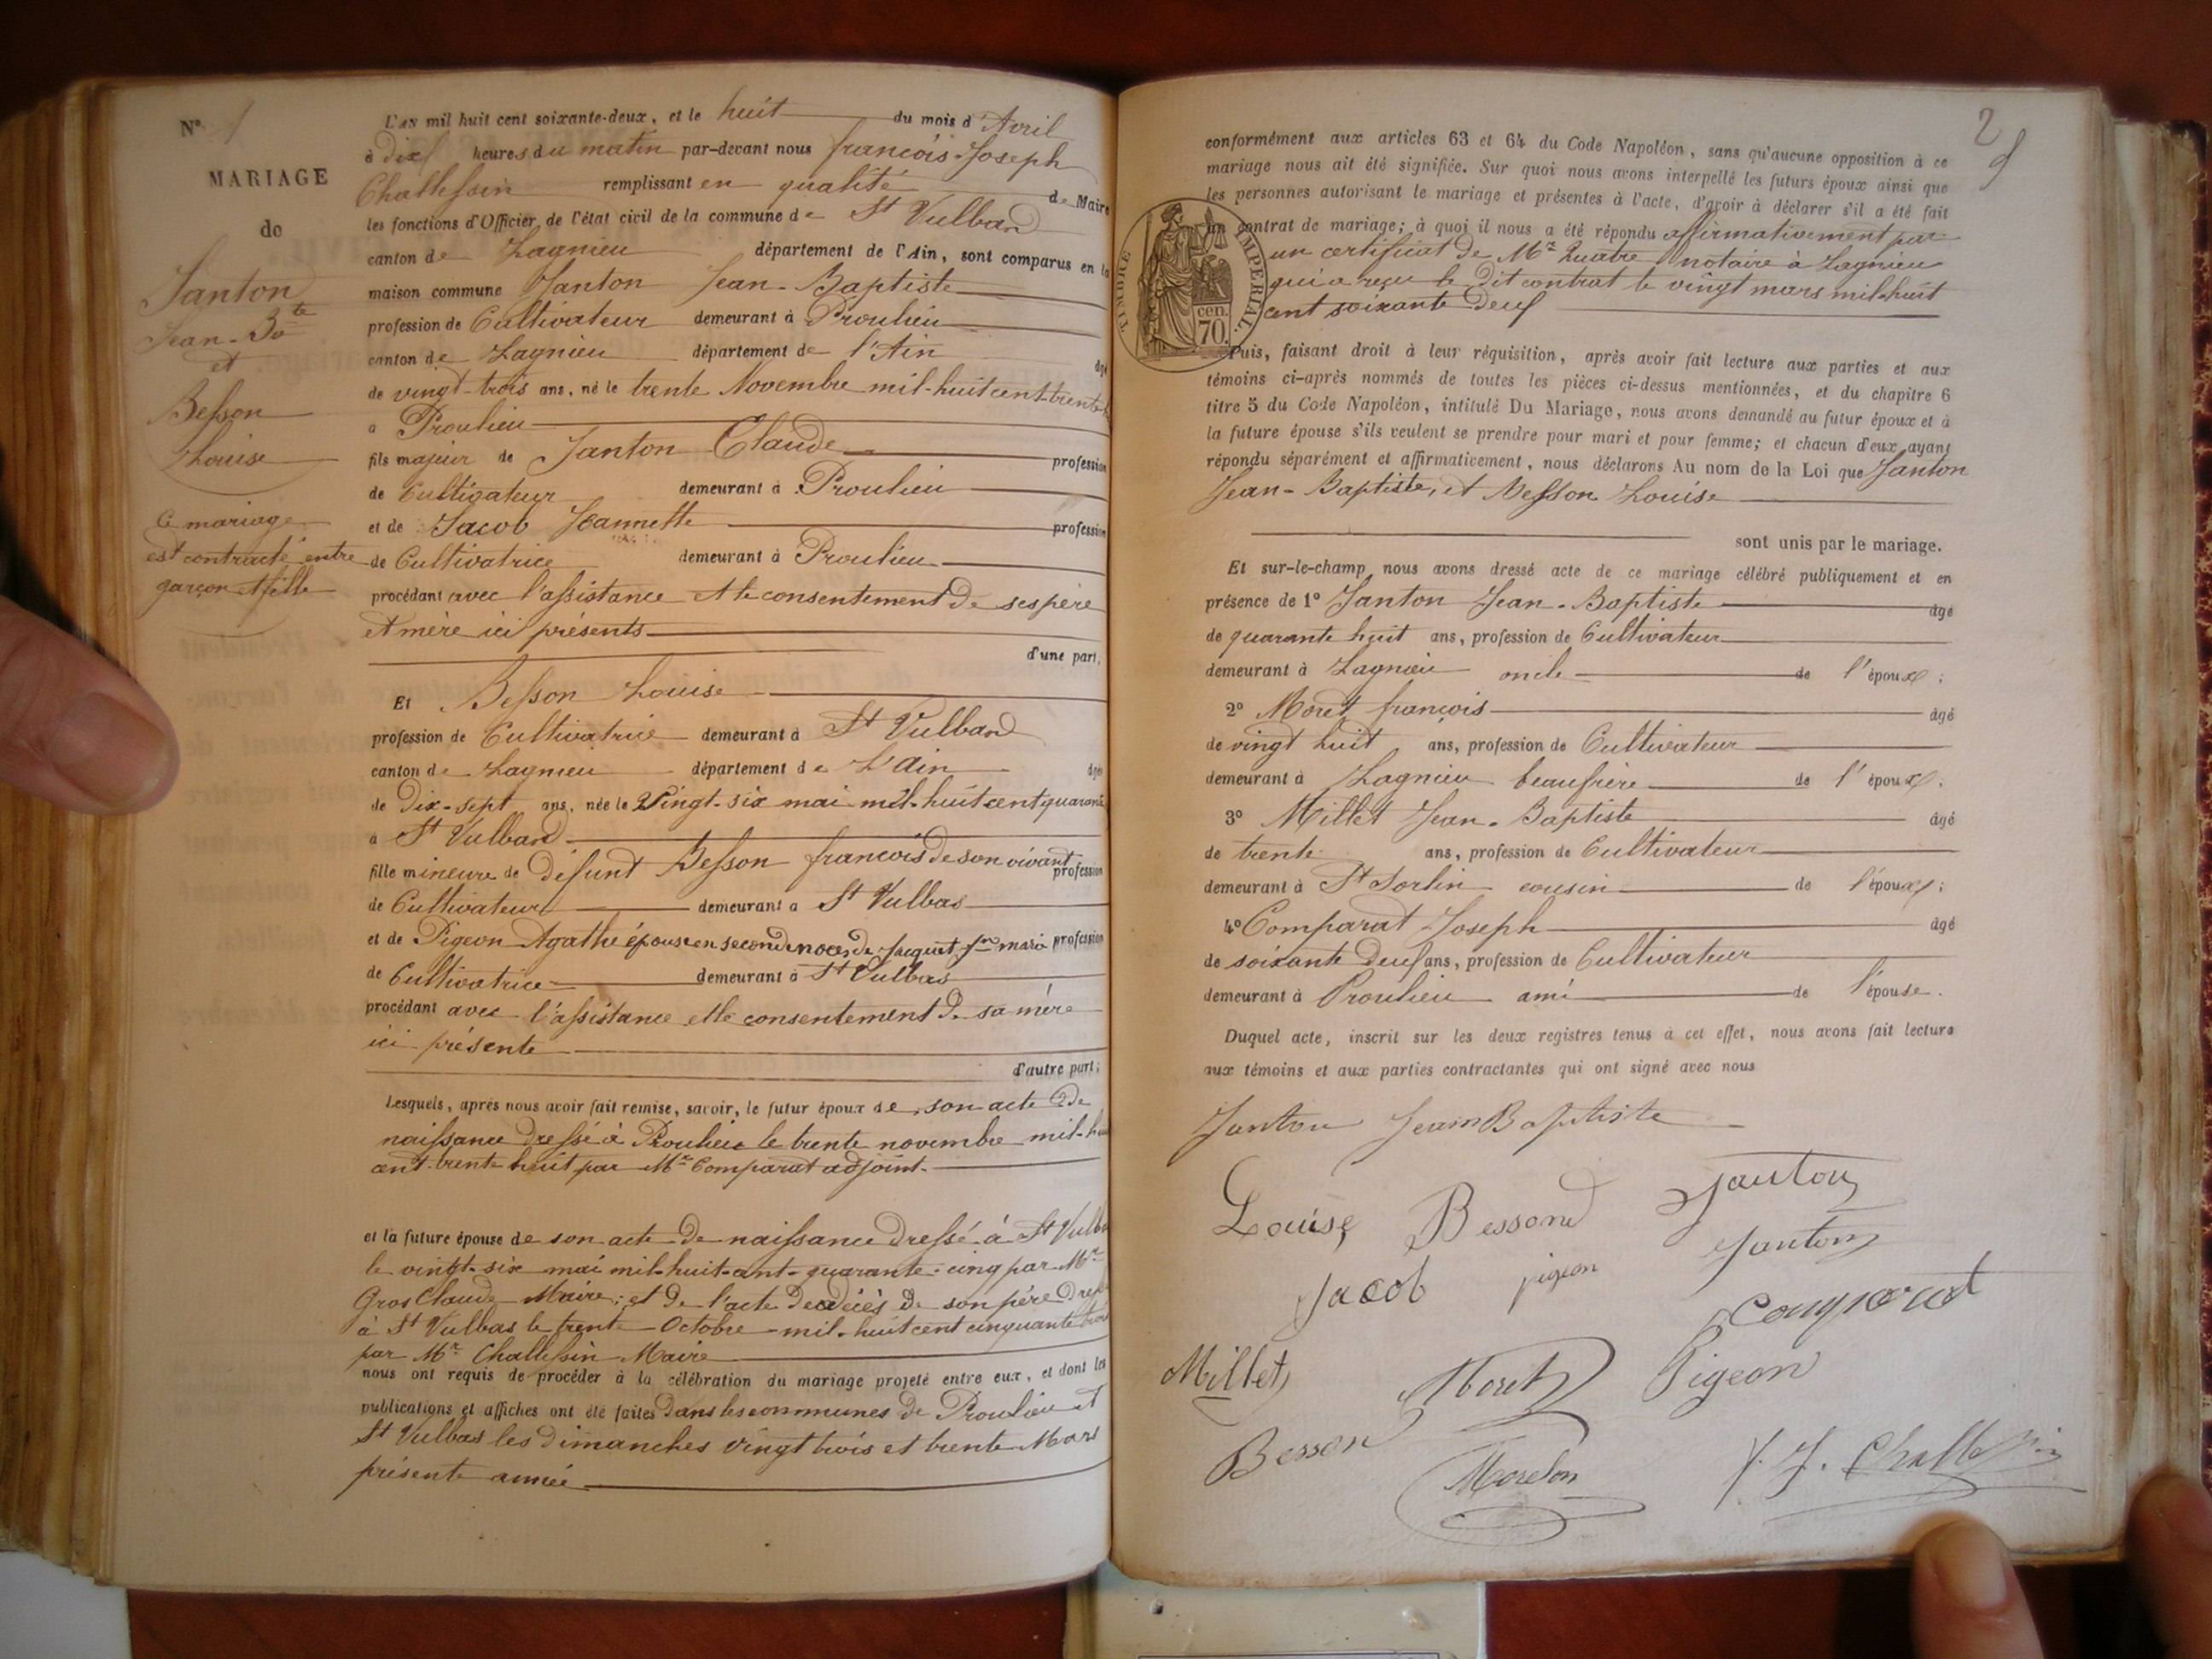 N° 1
MARIAGE
de
Janton
Jean-Bte
et
Besson
Louise
Ce mariage
est contracté entre
garçon et fille
L'AN mil huit cent soixante-deux, et le huit du mois d'Avril
à dix heures du matin par-devant nous françois-Joseph
Challessin remplissant en qualité de Maire
les fonctions d'Officier de l'état civil de la commune de St Vulbad
canton de Lagnieu département de l'Ain, sont comparus en la
maison commune Janton Jean-Baptiste
profession de Cultivateur demeurant à Proulieu
canton de Lagnieu département de l'Ain âgé
de vingt-trois ans, né le trente Novembre mil-huit cent trente
à Proulieu
fils majeur de Janton Claude profession
de Cultivateur demeurant à Proulieu
et de Jacob Jeannette profession
de Cultivatrice demeurant à Proulieu
procédant avec l'assistance et le consentement de ses père
et mère ici présents
d'une part,
Et Besson Louise
profession de Cultivatrice demeurant à St Vulbad
canton de Lagnieu département de L'Ain âgée
de Dix-sept ans, née le Vingt-six mai mil-huit cent quarante
à St Vulbad
fille mineure de défunt Besson françois de son vivant profession
de Cultivateur demeurant à St Vulbas
et de Pigeon Agathe épouse en seconde noces de Jacquet son mari profession
de Cultivatrice demeurant à St Vulbas
procédant avec l'assistance et le consentement de sa mère
ici présente
d'autre part;
Lesquels, après nous avoir fait remise, savoir, le futur époux de son acte de
naissance dressé à Proulieu le trente novembre mil-h
cent-trente huit par Mr Comparat adjoint.
et la future épouse de son acte de naissance dressé à St Vulba
le vingt-six mai mil-huit-cent-quarante-cinq par Mr
Gros Claude Maire; et de l'acte de décès de son père dressé
à St Vulbas le trente Octobre mil-huit cent cinquante trois
par Mr Challessin Maire
nous ont requis de procéder à la célébration du mariage projeté entre eux, et dont les
publications et affiches ont été faites Dans les communes de Proulieu et
St Vulbas les dimanches vingt trois et trente Mars
présente année
2
conformément aux articles 63 et 64 du Code Napoléon, sans qu'aucune opposition à ce
mariage nous ait été signifiée. Sur quoi nous avons interpellé les futurs époux ainsi que
les personnes autorisant le mariage et présentes à l'acte, d'avoir à déclarer s'il a été fait
un contrat de mariage; à quoi il nous a été répondu affirmativement par
un certificat de Mr Quatre notaire à Lagnieu
qui a reçu le dit contrat le vingt mars mil-huit
cent soixante deux
TIMBRE IMPERIAL.
cen.
70.
Puis, faisant droit à leur réquisition, après avoir fait lecture aux parties et aux
témoins ci-après nommés de toutes les pièces ci-dessus mentionnées, et du chapitre 6
titre 5 du Code Napoléon, intitulé Du Mariage, nous avons demandé au futur époux et à
la future épouse s'ils veulent se prendre pour mari et pour femme; et chacun d'eux ayant
répondu séparément et affirmativement, nous déclarons Au nom de la Loi que Janton
Jean-Baptiste, et Besson Louise
sont unis par le mariage.
Et sur-le-champ nous avons dressé acte de ce mariage célébré publiquement et en
présence de 1° Janton Jean-Baptiste âgé
de quarante huit ans, profession de Cultivateur
demeurant à Lagnieu oncle de l'époux;
2° Moret françois âgé
de vingt huit ans, profession de Cultivateur
demeurant à Lagnieu beaufrère de l'époux;
3° Millet Jean-Baptiste âgé
de trente ans, profession de Cultivateur
demeurant à St Sorlin cousin de l'époux;
4° Comparat Joseph âgé
de soixante deux ans, profession de Cultivateur
demeurant à Proulieu ami de l'épouse.
Duquel acte, inscrit sur les deux registres tenus à cet effet, nous avons fait lecture
aux témoins et aux parties contractantes qui ont signé avec nous
Janton Jean Baptiste
Louise Bessond Janton
Janton
Jacob pigeon
Comparat
Millet Moret Pigeon
Besson
Morelon
f. J. Challessin